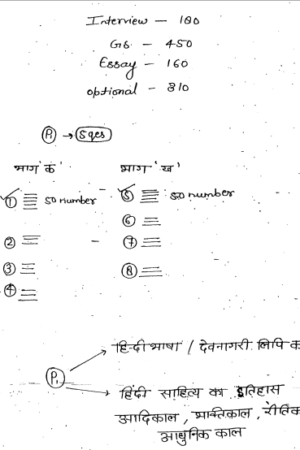 Interview — 180
GS — 450
Essay — 160
optional — 310
(P) → 5 ques
भाग 'क' भाग 'ख'
① 50 number ⑤ 50 number
② – ⑥
③ ⑦
④ ⑧
P₁ → हिन्दी भाषा / देवनागरी लिपि
→ हिंदी साहित्य का इतिहास
आदिकाल, भक्तिकाल,
आधुनिक काल